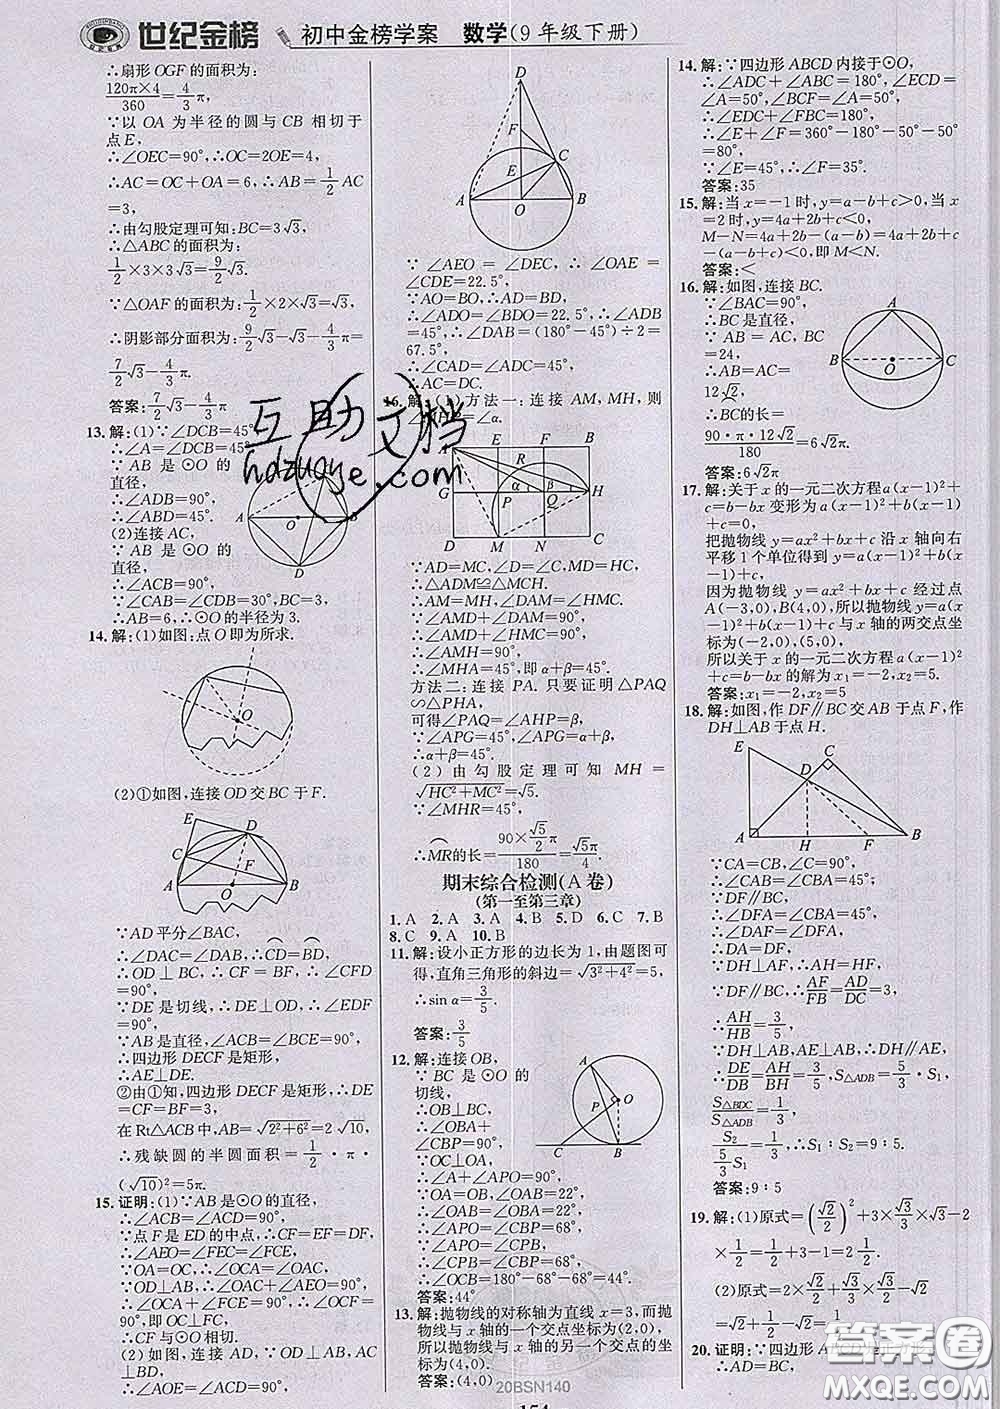 世纪金榜 初中金榜学案 数学(9年级下册)
∴扇形OGF的面积为:
120π×4/360=4/3π,
∵以OA为半径的圆与CB相切于
点E,
∴∠OEC=90°,∴OC=2OE=4,
∴AC=OC+OA=6,∴AB=1/2AC
=3,
∴由勾股定理可知:BC=3√3,
∴△ABC的面积为:
1/2×3×3√3=9/2√3.
∵△OAF的面积为:1/2×2×√3=√3,
∴阴影部分面积为:9/2√3-√3-4/3π=
7/2√3-4/3π.
答案:7/2√3-4/3π
13.解:(1)∵∠DCB=45°
∴∠A=∠DCB=45°
∵AB是⊙O的
直径,
∴∠ADB=90°,
∴∠ABD=45°.
(2)连接AC,
∵AB是⊙O的
直径,
∴∠ACB=90°,
∵∠CAB=∠CDB=30°,BC=3,
∴AB=6,∴⊙O的半径为3.
14.解:(1)如图:点O即为所求.
(2)①如图,连接OD交BC于F.
∵AD平分∠BAC,
∴∠DAC=∠DAB,∴CD=BD,
∴OD⊥BC于F,∴∠CFD
=90°,
∵DE是切线,∴DE⊥OD,∴∠EDF
=90°,
∵AB是直径,∴∠ACB=∠BCE=90°,
∴四边形DECF是矩形,
∴AE⊥DE.
②由①知,四边形DECF是矩形,∴DE
=CF=BF=3,
在Rt△ACB中,AB=√2²+6²=2√10,
∴残缺圆的半圆面积=1/2·π·
(√10)²=5π.
15.证明:(1)∵AB是⊙O的直径,
∴∠ACB=∠ACD=90°,
∵点F是ED的中点,∴CF=EF=DF,
∴∠AEO=∠FEC=∠FCE,
∵OA=OC,∴∠OCA=∠OAC,
∵OD⊥AB,∴∠OAC+∠AEO=90°,
∴∠OCA+∠FCE=90°,
即∴OC⊥FC,
∴CF与⊙O相切.
(2)如图,连接AD,∵OD⊥AB,AC⊥BD,
∵∠AEO=∠DEC,∴∠OAE=
∠CDE=22.5°,
∵AO=BO,∴AD=BD,
∴∠ADO=∠BDO=22.5°,∴∠ADB
=45°,∴∠DAB=(180°-45°)÷2=
67.5°,
∴∠CAD=∠ADC=45°,
∴AC=DC.
16.解:(1)方法一:连接AM,MH,则
∠MHP=∠α.
∵AD=MC,∠D=∠C,MD=HC,
∴△ADM≌△MCH.
∴AM=MH,∠DAM=∠HMC.
∵∠AMD+∠DAM=90°,
∴∠AMD+∠HMC=90°,
∴∠AMH=90°,
∴∠MHA=45°,即α+β=45°.
方法二:连接PA.只要证明△PAQ
∽△PHA,
可得∠PAQ=∠AHP=β,
∵∠APG=45°,∠APG=α+β,
∴α+β=45°.
(2)由勾股定理可知MH=
√HC²+MC²=√5.
∵∠MHR=45°,
∴MR的长=90×√5/2π/180=√5π/4.
期末综合检测(A卷)
(第一至第三章)
1.A 2.A 3.A 4.B 5.D 6.C 7.B
8.C 9.A 10.B
11.解:设小正方形的边长为1,由题图可
得,直角三角形的斜边=√3²+4²=5,
∴sin α=3/5.
答案:3/5
12.解:连接OB,
∵BC是⊙O的
切线,
∴OB⊥BC,
∴∠OBA+
∠CBP=90°,
∵OC⊥OA,
∴∠A+∠APO=90°,
∵OA=OB,∠OAB=22°,
∴∠OAB=∠OBA=22°,
∴∠APO=∠CBP=68°,
∵∠APO=∠CPB,
∴∠CPB=∠CBP=68°,
∴∠OCB=180°-68°-68°=44°
答案:44°
13.解:抛物线的对称轴为直线x=3,而抛
物线与x轴的一个交点坐标为(2,0),
所以抛物线与x轴的另一个交点的坐
标为(4,0).
答案:(4,0)
14.解:∵四边形ABCD内接于⊙O,
∴∠ADC+∠ABC=180°,∠ECD=
∠A=50°,∠BCF=∠A=50°,
∴∠EDC+∠FBC=180°,
∴∠E+∠F=360°-180°-50°-50°=
80°,
∵∠E=45°,∴∠F=35°.
答案:35
15.解:当x=-1时,y=a-b+c>0,当x=
2时,y=4a+2b+c<0,
M-N=4a+2b-(a-b)=4a+2b+c
-(a-b+c)<0,即M<N.
答案:<
16.解:如图,连接BC.
∵∠BAC=90°,
∴BC是直径,
∵AB=AC,BC
=24,
∴AB=AC=
12√2,
∴BC的长=
90·π·12√2/180=6√2π.
答案:6√2π
17.解:关于x的一元二次方程a(x-1)²+
c=b-bx变形为a(x-1)²+b(x-1)
+c=0,
把抛物线y=ax²+bx+c沿x轴向右
平移1个单位得到y=a(x-1)²+b(x-1)+c,
因为抛物线y=ax²+bx+c经过点
A(-3,0),B(4,0),所以抛物线y=
a(x-1)²+b(x-1)+c与x轴的两交点坐
标为(-2,0),(5,0),
所以关于x的一元二次方程a(x-1)²
+c=b-bx的解为x₁=-2,x₂=5.
答案:x₁=-2,x₂=5
18.解:如图,作DF∥BC交AB于点F,作
DH⊥AB于点H.
∵CA=CB,∠ACB=90°,
∴∠CAB=∠CBA=45°,
∵DF∥BC,
∴∠DFA=∠CBA=45°,
∴∠DAF=∠DFA,
∴DA=DF,
∵DH⊥AF,∴AH=HF,
∵DF∥BC,∴AF/FB=AD/DC=3,
∴AH/HB=3/5,
∵DH⊥AB,EA⊥AB,∴DH∥AE,
∴DE/DB=AH/HB=3/5,∴S△ADB=5/3·S₁,
S△BDC/S△ADB=
S₂/(5/3S₁)=1/3,∴S₁∶S₂=9∶5.
答案:9∶5
19.解:(1)原式=(√2/2)²+3×√3/3×√3-2
×1/2=1/2+3-1=2 1/2.
(2)原式=2×√2/2+√3/2-√3/2-√2
=√2+√3/2-√3/2-√2=0.
20.证明:∵四边形
∴AD=BC,
互助文档
hdzuoye.com
20BSN140
答案圈
MXQE.COM
154